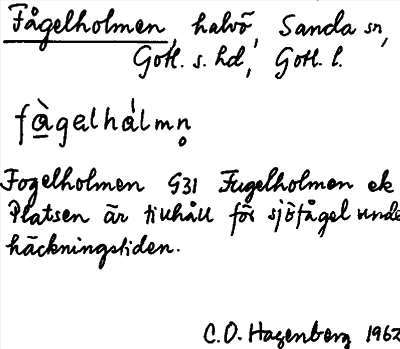 Fågelholmen, halvö, Sanda sn,
Gotl. s. hd, Gotl. l.
fàgelhálmn̥
Fogelholmen G31 Fugelholmen ek
Platsen är tillhåll för sjöfågel unde
häckningstiden.
C.O. Hagenberg 1962